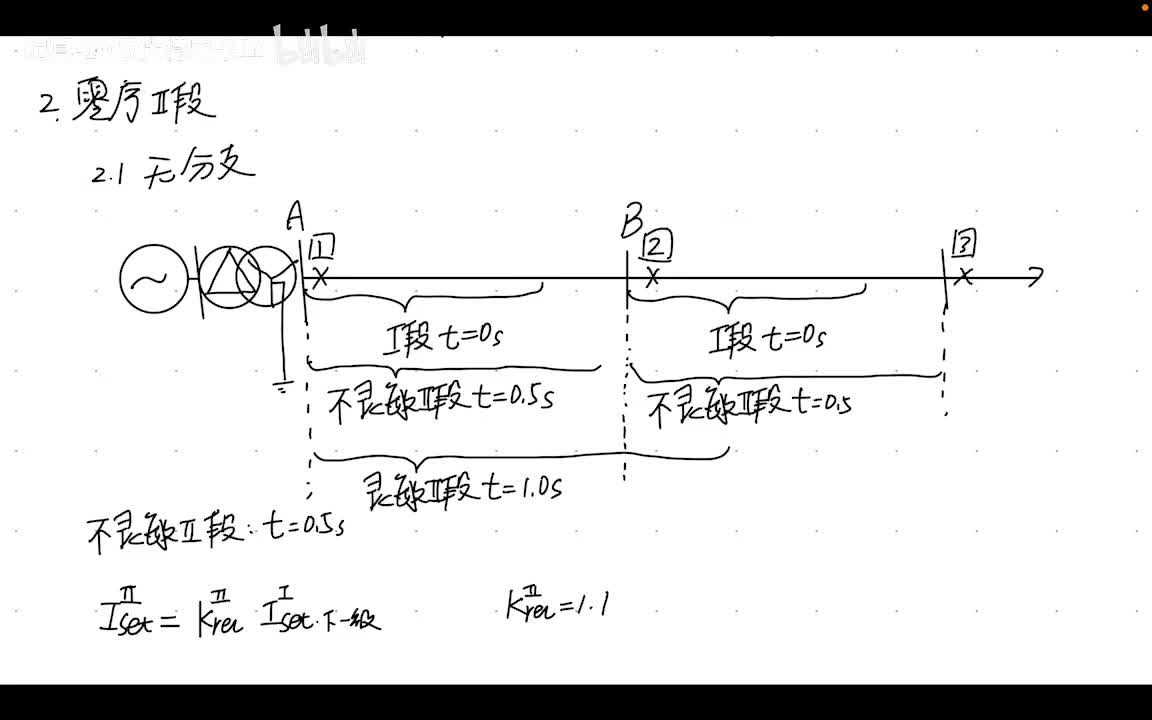 bilibili
2. 零序Ⅱ段
2.1 无分支
A
B
1
2
3
Ⅰ段 t=0s
Ⅰ段 t=0s
不灵敏Ⅱ段 t=0.5s
不灵敏Ⅱ段 t=0.5
灵敏Ⅱ段 t=1.0s
不灵敏Ⅱ段: t=0.5s
I^Ⅱ_set = K^Ⅱ_rel I^Ⅰ_set.下一级
K^Ⅱ_rel = 1.1